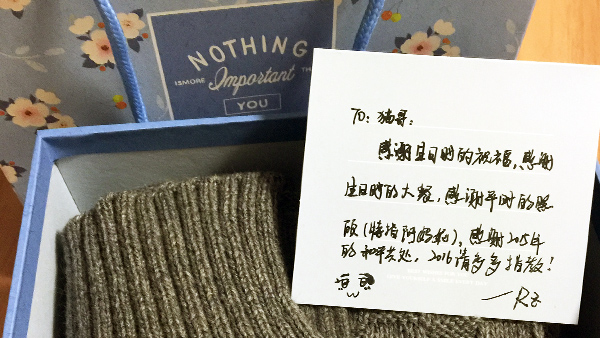 NOTHING
ISMORE Important TH
YOU
TO: 猫哥:
感谢生日时的祝福,感谢
生日时的大餐,感谢平时的照
顾(特指阿妈),感谢2015年
的和平共处,2016请多多指教!
—Rz